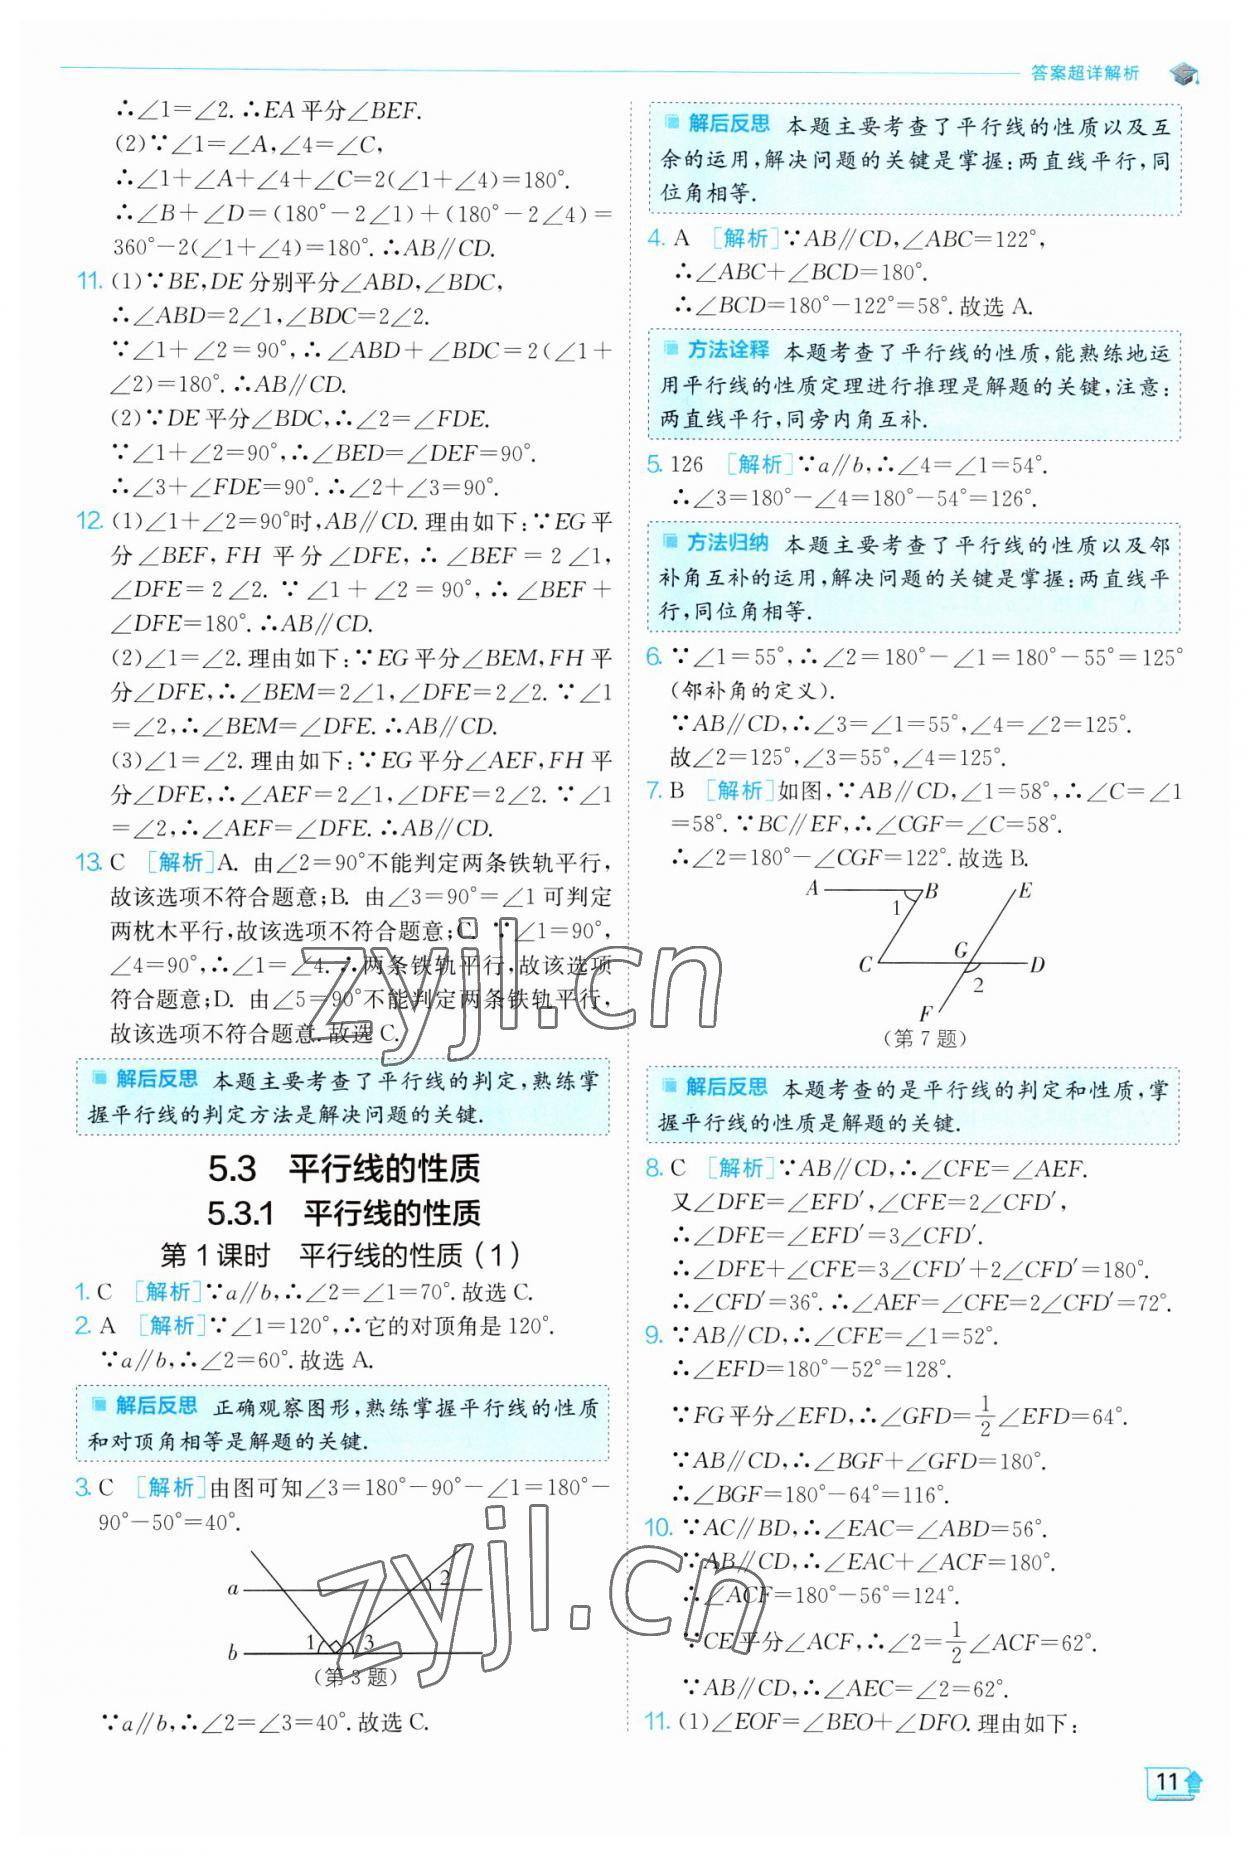 答案超详解析
∴∠1=∠2.∴EA平分∠BEF.
(2)∵∠1=∠A,∠4=∠C,
∴∠1+∠A+∠4+∠C=2(∠1+∠4)=180°.
∴∠B+∠D=(180°-2∠1)+(180°-2∠4)=
360°-2(∠1+∠4)=180°.∴AB∥CD.
11. (1)∵BE,DE分别平分∠ABD,∠BDC,
∴∠ABD=2∠1,∠BDC=2∠2.
∵∠1+∠2=90°,∴∠ABD+∠BDC=2(∠1+
∠2)=180°.∴AB∥CD.
(2)∵DE平分∠BDC,∴∠2=∠FDE.
∵∠1+∠2=90°,∴∠BED=∠DEF=90°.
∴∠3+∠FDE=90°.∴∠2+∠3=90°.
12. (1)∠1+∠2=90°时,AB∥CD.理由如下:∵EG平
分∠BEF,FH平分∠DFE,∴∠BEF=2∠1,
∠DFE=2∠2.∵∠1+∠2=90°,∴∠BEF+
∠DFE=180°.∴AB∥CD.
(2)∠1=∠2.理由如下:∵EG平分∠BEM,FH平
分∠DFE,∴∠BEM=2∠1,∠DFE=2∠2.∵∠1
=∠2,∴∠BEM=∠DFE.∴AB∥CD.
(3)∠1=∠2.理由如下:∵EG平分∠AEF,FH平
分∠DFE,∴∠AEF=2∠1,∠DFE=2∠2.∵∠1
=∠2,∴∠AEF=∠DFE.∴AB∥CD.
13. C [解析]A. 由∠2=90°不能判定两条铁轨平行,
故该选项不符合题意;B. 由∠3=90°=∠1可判定
两枕木平行,故该选项不符合题意;C. ∵∠1=90°,
∠4=90°,∴∠1=∠4.∴两条铁轨平行,故该选项
符合题意;D. 由∠5=90°不能判定两条铁轨平行,
故该选项不符合题意.故选C.
解后反思 本题主要考查了平行线的判定,熟练掌
握平行线的判定方法是解决问题的关键.
5.3 平行线的性质
5.3.1 平行线的性质
第1课时 平行线的性质(1)
1. C [解析]∵a∥b,∴∠2=∠1=70°.故选C.
2. A [解析]∵∠1=120°,∴它的对顶角是120°.
∵a∥b,∴∠2=60°.故选A.
解后反思 正确观察图形,熟练掌握平行线的性质
和对顶角相等是解题的关键.
3. C [解析]由图可知∠3=180°-90°-∠1=180°-
90°-50°=40°.
a 2
b 1 3
(第3题)
∵a∥b,∴∠2=∠3=40°.故选C.
解后反思 本题主要考查了平行线的性质以及互
余的运用,解决问题的关键是掌握:两直线平行,同
位角相等.
4. A [解析]∵AB∥CD,∠ABC=122°,
∴∠ABC+∠BCD=180°.
∴∠BCD=180°-122°=58°.故选A.
方法诠释 本题考查了平行线的性质,能熟练地运
用平行线的性质定理进行推理是解题的关键,注意:
两直线平行,同旁内角互补.
5. 126 [解析]∵a∥b,∴∠4=∠1=54°.
∴∠3=180°-∠4=180°-54°=126°.
方法归纳 本题主要考查了平行线的性质以及邻
补角互补的运用,解决问题的关键是掌握:两直线平
行,同位角相等.
6. ∵∠1=55°,∴∠2=180°-∠1=180°-55°=125°
(邻补角的定义).
∵AB∥CD,∴∠3=∠1=55°,∠4=∠2=125°.
故∠2=125°,∠3=55°,∠4=125°.
7. B [解析]如图,∵AB∥CD,∠1=58°,∴∠C=∠1
=58°.∵BC∥EF,∴∠CGF=∠C=58°.
∴∠2=180°-∠CGF=122°.故选B.
A B E
1
G
C D
2
F
(第7题)
解后反思 本题考查的是平行线的判定和性质,掌
握平行线的性质是解题的关键.
8. C [解析]∵AB∥CD,∴∠CFE=∠AEF.
又∠DFE=∠EFD′,∠CFE=2∠CFD′,
∴∠DFE=∠EFD′=3∠CFD′.
∴∠DFE+∠CFE=3∠CFD′+2∠CFD′=180°.
∴∠CFD′=36°.∴∠AEF=∠CFE=2∠CFD′=72°.
9. ∵AB∥CD,∴∠CFE=∠1=52°.
∴∠EFD=180°-52°=128°.
∵FG平分∠EFD,∴∠GFD=1/2∠EFD=64°.
∵AB∥CD,∴∠BGF+∠GFD=180°.
∴∠BGF=180°-64°=116°.
10. ∵AC∥BD,∴∠EAC=∠ABD=56°.
∵AB∥CD,∴∠EAC+∠ACF=180°.
∴∠ACF=180°-56°=124°.
∵CE平分∠ACF,∴∠2=1/2∠ACF=62°.
∵AB∥CD,∴∠AEC=∠2=62°.
11. (1)∠EOF=∠BEO+∠DFO.理由如下:
11
zyjl.cn
zyjl.cn